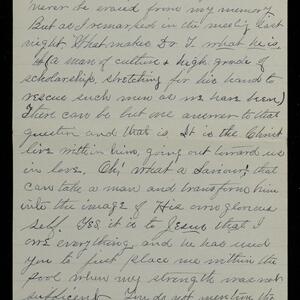 never be erased from my memory.
But as I remarked in the meeting last
night What makes Dr T. what he is.
(a man of culture & high grade of
scholarship, stretching for his hand to
rescue such men as we have been)
There can be but one answer to that
question and that is. It is the Christ
live within him, going out toward us
in love. Oh! what a Saviour! that
can take a man and transform him
into the image of His own glorious
self. Yes it is to Jesus that I
owe everything, and he has used
you to just place me within the
pool when my strength was not
sufficient. You do not mention the